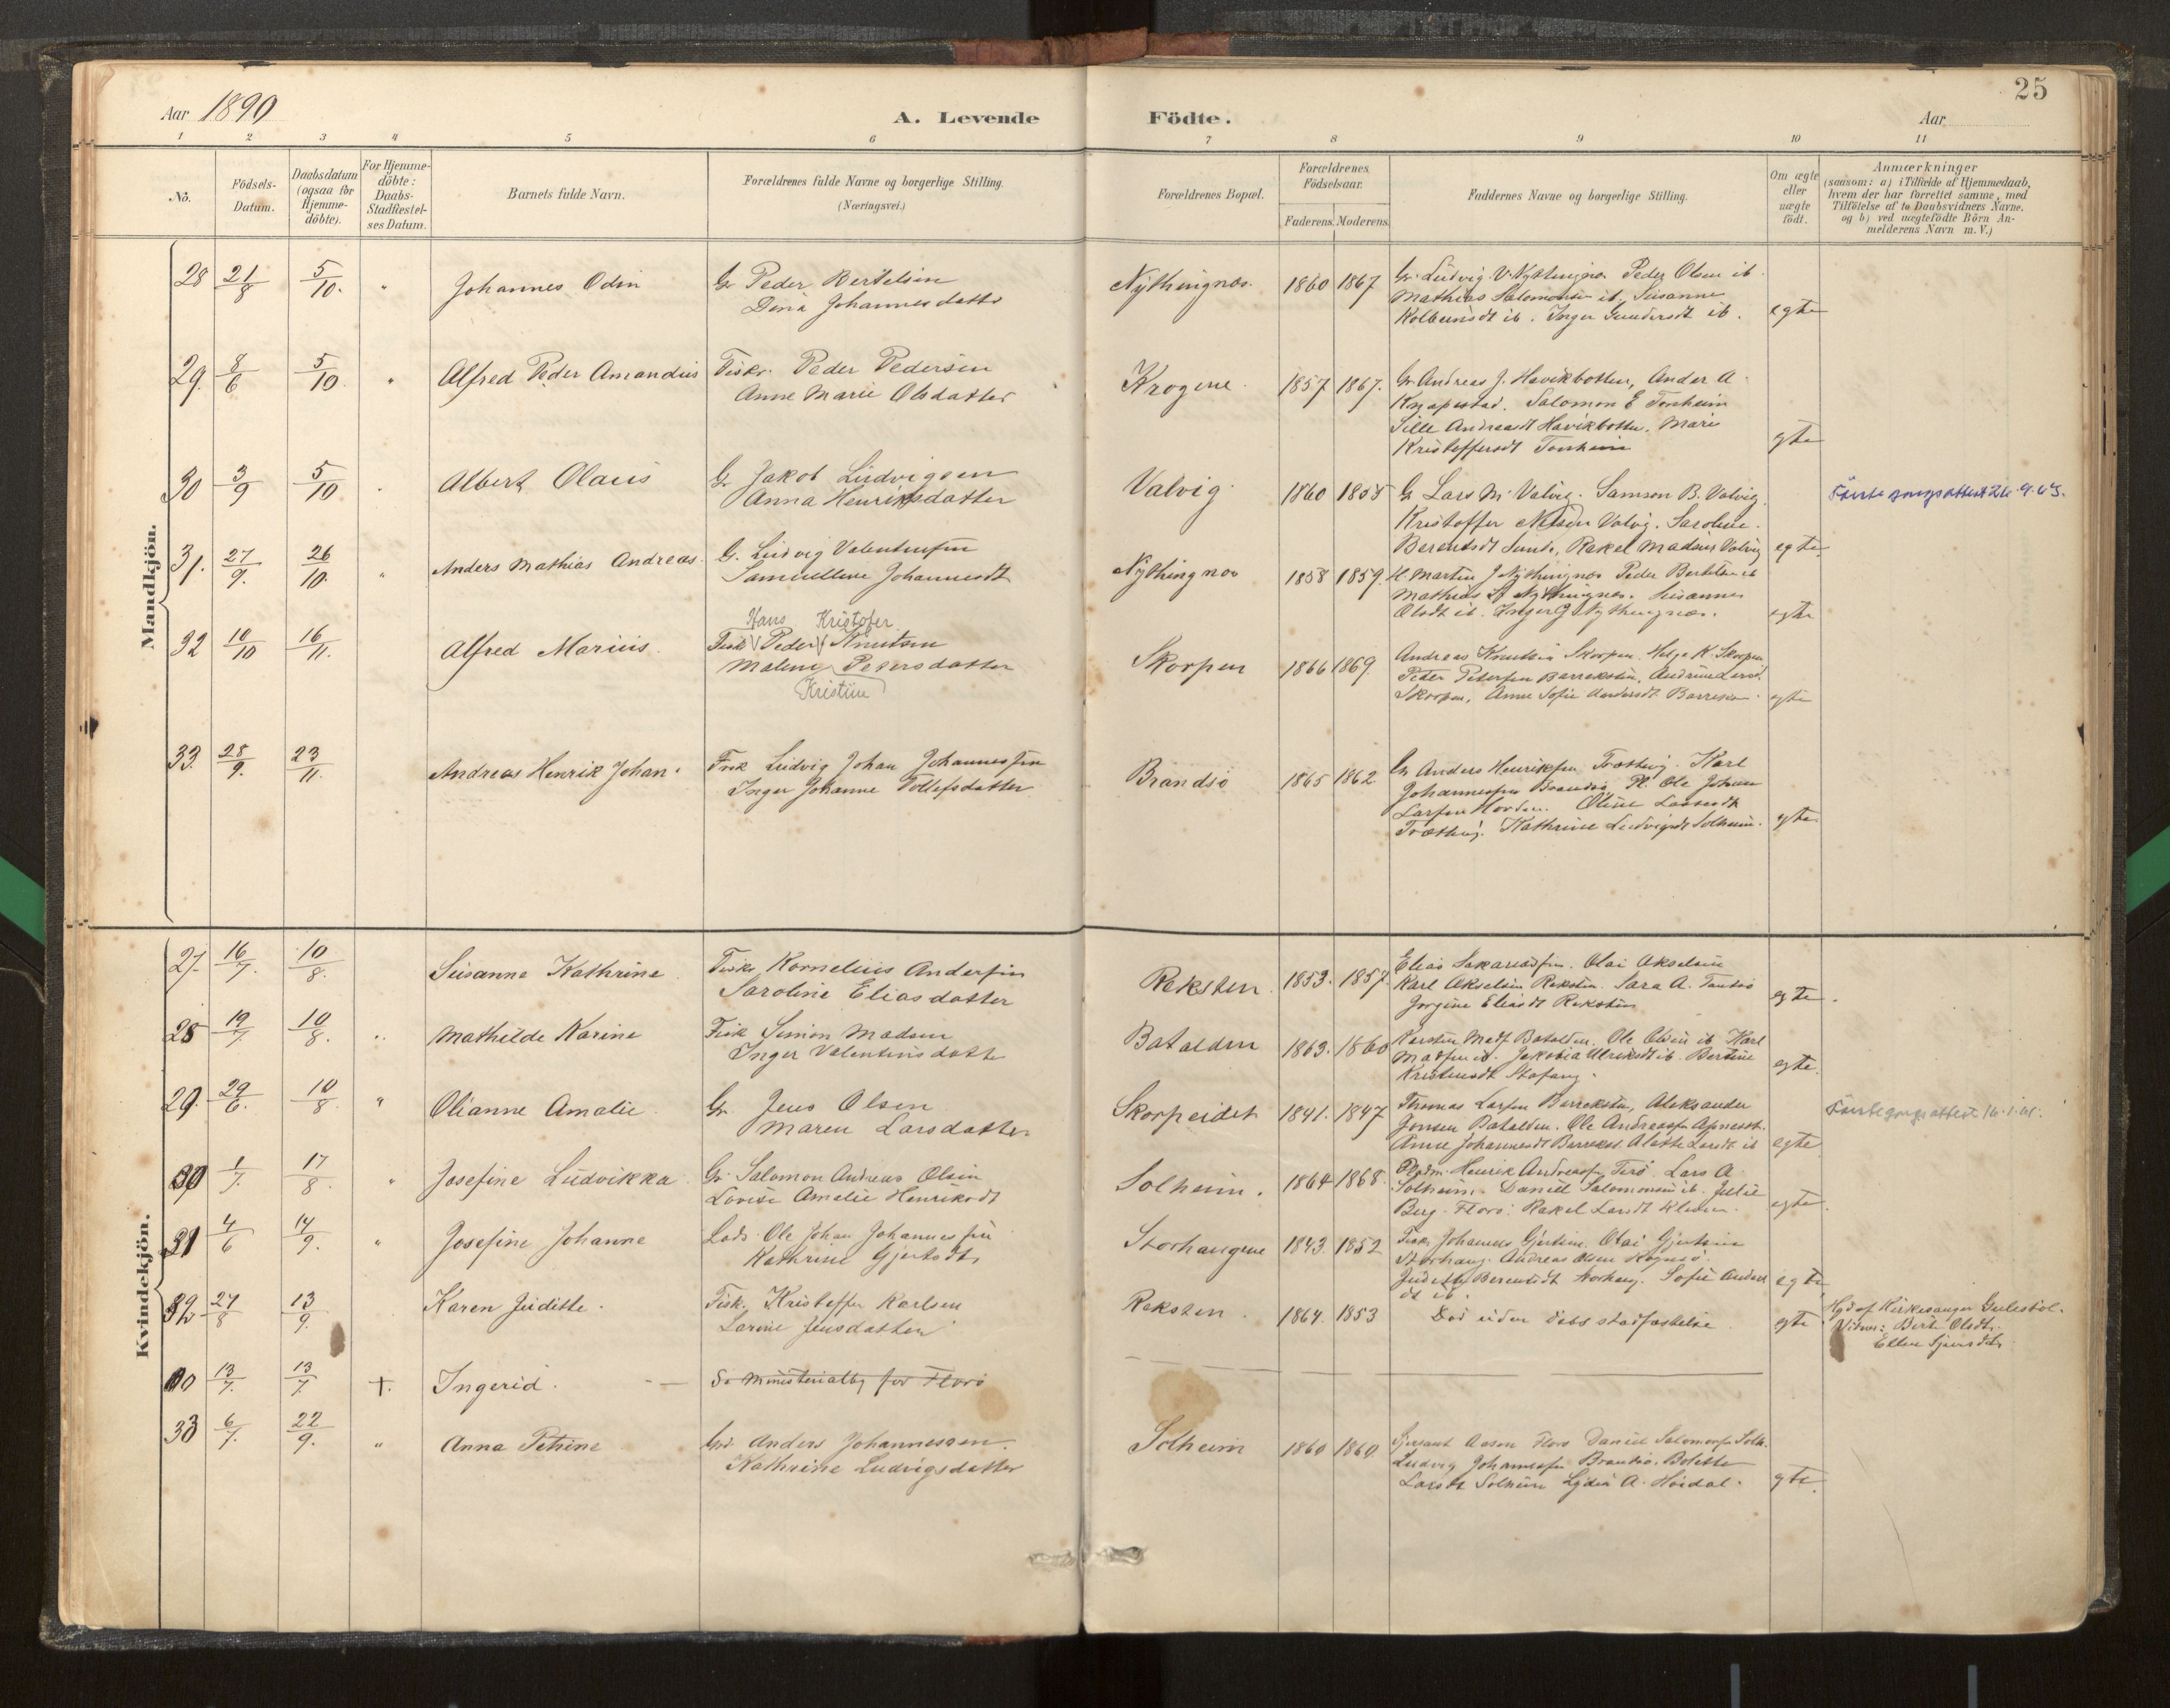 25
Aar 1890
A. Levende
Födte.
Aar
1 2 3 4 5 6 7 8 9 10 11
No.
Födsels-
Datum.
Daabsdatum
(ogsaa for
Hjemme-
döbte).
For Hjemme-
döbte:
Daabs-
Stadfæstel-
ses Datum.
Barnets fulde Navn.
Forældrenes fulde Navne og borgerlige Stilling.
(Næringsvei.)
Forældrenes Bopæl.
Forældrenes
Födselsaar.
Faderens. Moderens.
Faddernes Navne og borgerlige Stilling.
Om ægte
eller
uægte
födt.
Anmærkninger
(saasom: a) i Tilfælde af Hjemmedaab,
hvem der har forrettet samme, med
Tilföielse af to Daabsvidners Navne.
og b) ved uægtefödte Börn An-
melderens Navn m. V.)
Mandkjön.
28 21/8 5/10. " Johannes Odin
Gr Peder Bertelsen
Dina Johannesdatter
Nythingnæs. 1860 1867
Gr. Ludvig V. Nythingnæs Peder Olsen ib.
Mathias Salomonsen ib. Susanne
Kolbeinsdt ib. Inger Gundersdt ib.
egte
29. 8/6 5/10. " Alfred Peder Amandus
Fisker Peder Pedersen
Anne Marie Olsdatter
Krogene. 1857 1867.
Gr Andreas J. Havikbotten, Ander A.
Knapstad. Salomon E Tonheim
Sille Andreasdt Havikbotten. Mari
Kristoffersdt Tonheim
egte
30 3/9 5/10 . Albert Olaus
Gr Jakob Ludvigsen
Anna Henriksdatter
Valvig. 1860 1855
G Lars M. Valvig. Samson B. Valvig
Kristoffer Nilsen Valvig. Saroline
Berentsdt Sunde, Rakel Madsdt Valvig
egte.
31. 27/9. 26/10. " Anders Mathias Andreas.
G. Ludvig Valentinsen
Samueline Johannesdt
Nythingnæs 1858 1859.
G. Martin J Nythingnæs Peder Bertelsen ib
Mathias S. Nythingnæs. Susanne
Olsdt ib. Inger G Nythingnæs.
egte
32 10/10 16/11. Alfred Marius.
Hans Kristofer
Fisk Peder Knutsen
Malene Pedersdatter
Kristine
Skorpen 1866 1869.
Andreas Knutsen Skorpen. Helge K. Skorpen
Peter Petersen Barreksten, Andrine Larsd.
Skorpen, Anne Sofie Andersdt Barrekst.
egte
33. 28/9. 23/11. Andreas Henrik Johan.
Fisk Ludvig Johan Johannessen
Inger Johanne Tollefsdatter
Brandsö 1865 1862
Gr Anders Henriksen Træthvig. Karl
Johannessen Brandsö, Pl. Ole Johan
Larsen Hovden. Oline Larsesdt
Træthvig. Kathrine Ludvigsdt Solheim.
egte
Kvindekjön.
27. 16/7. 10/8. Susanne Kathrine.
Fisker Kornelius Andersen
Saroline Eliasdatter
Reksten. 1853. 1857.
Elias Sakariassen. Olai Akselsen
Karl Akselsen Reksten. Sara A. Tansö
Jorgine Eliasdt Reksten
egte.
28 19/7. 10/8. " Mathilde Karine
Fisk Simon Madsen
Inger Valentinsdatter
Batalden 1863. 1860
Karsten Mads Batalden. Ole Olsen ib Karl
Madsen ib. Jakobia Ulriksdt ib. Bertine
Kristensdt Stafang.
egte.
29. 29/6. 10/8. " Olianne Amalie.
Gr. Jens Olsen
Maren Larsdatter
Skorpeidet 1841. 1847
Thomas Larsen Barreksten, Aleksander
Jonsen Batalden. Ole Andreassen
Anne Johannesdt Barrekst. Alette Larsdt ib
egte
30 1/7. 17/8. " Josefine Ludvikka.
Gr. Salomon Andreas Olsen
Lovise Amalie Henriksdt
Solheim. 1864 1868.
Henrik Andreassen Terö. Lars A.
Solheim. Daniel Salomonsen ib. Julie
Berg. Florö. Rakel Larsdt
egte.
31 4/6 14/9. " Josefine Johanne
Lods. Ole Johan Johannessen
Kathrine Gjertsdt.
Storhaugene 1843. 1852
Fisk. Johannes Gjertsen. Olai Gjertsen
Storhaug. Andreas Olsen
Judith Berentsdt Storhaug. Sofie Anders
dt ib.
egte,
32 27/8 13/9. Karen Juditte.
Fisk. Kristoffer Karlsen
Larine Jensdatter
Reksten. 1864. 1853
Död uden dåbs stadfæstelse.
egte
Hjd af Kirkesanger Gulestöl.
Vidner: Berte Olsdt.
Ellen Sjursdt.
00 13/7. 13/7 +. Ingerid. — Se Ministerialbg for Florö
33 6/7. 22/9. " Anna Petrine
Grd Anders Johannessen.
Kathrine Ludvigsdatter
Solheim 1860 1860.
Sersant Aasen Florö Daniel Salomonsen Solh.
Ludvig Johannessen Brandsö. Bolette
Larsdt Solheim Lydia A. Høidal.
egte.